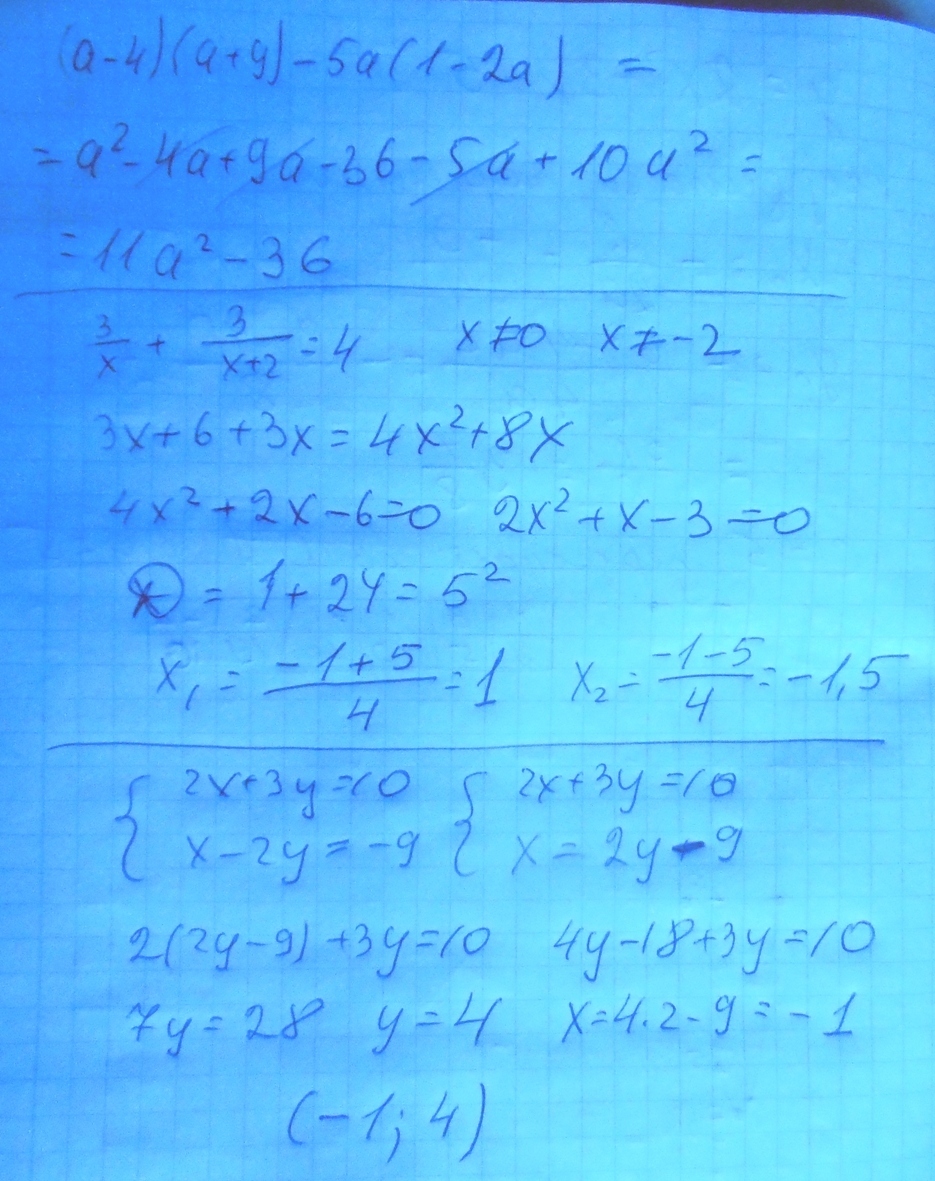 (a-4)(a+9)-5a(1-2a) =
=a²-4a+9a-36-5a+10a²=
=11a²-36
3/x + 3/(x+2) =4 x≠0 x≠-2
3x+6+3x=4x²+8x
4x²+2x-6=0 2x²+x-3=0
D=1+24=5²
x₁=(-1+5)/4=1 x₂=(-1-5)/4=-1,5
{2x+3y=10 {2x+3y=10
x-2y=-9 x=2y-9
2(2y-9)+3y=10 4y-18+3y=10
7y=28 y=4 x=4·2-9=-1
(-1;4)